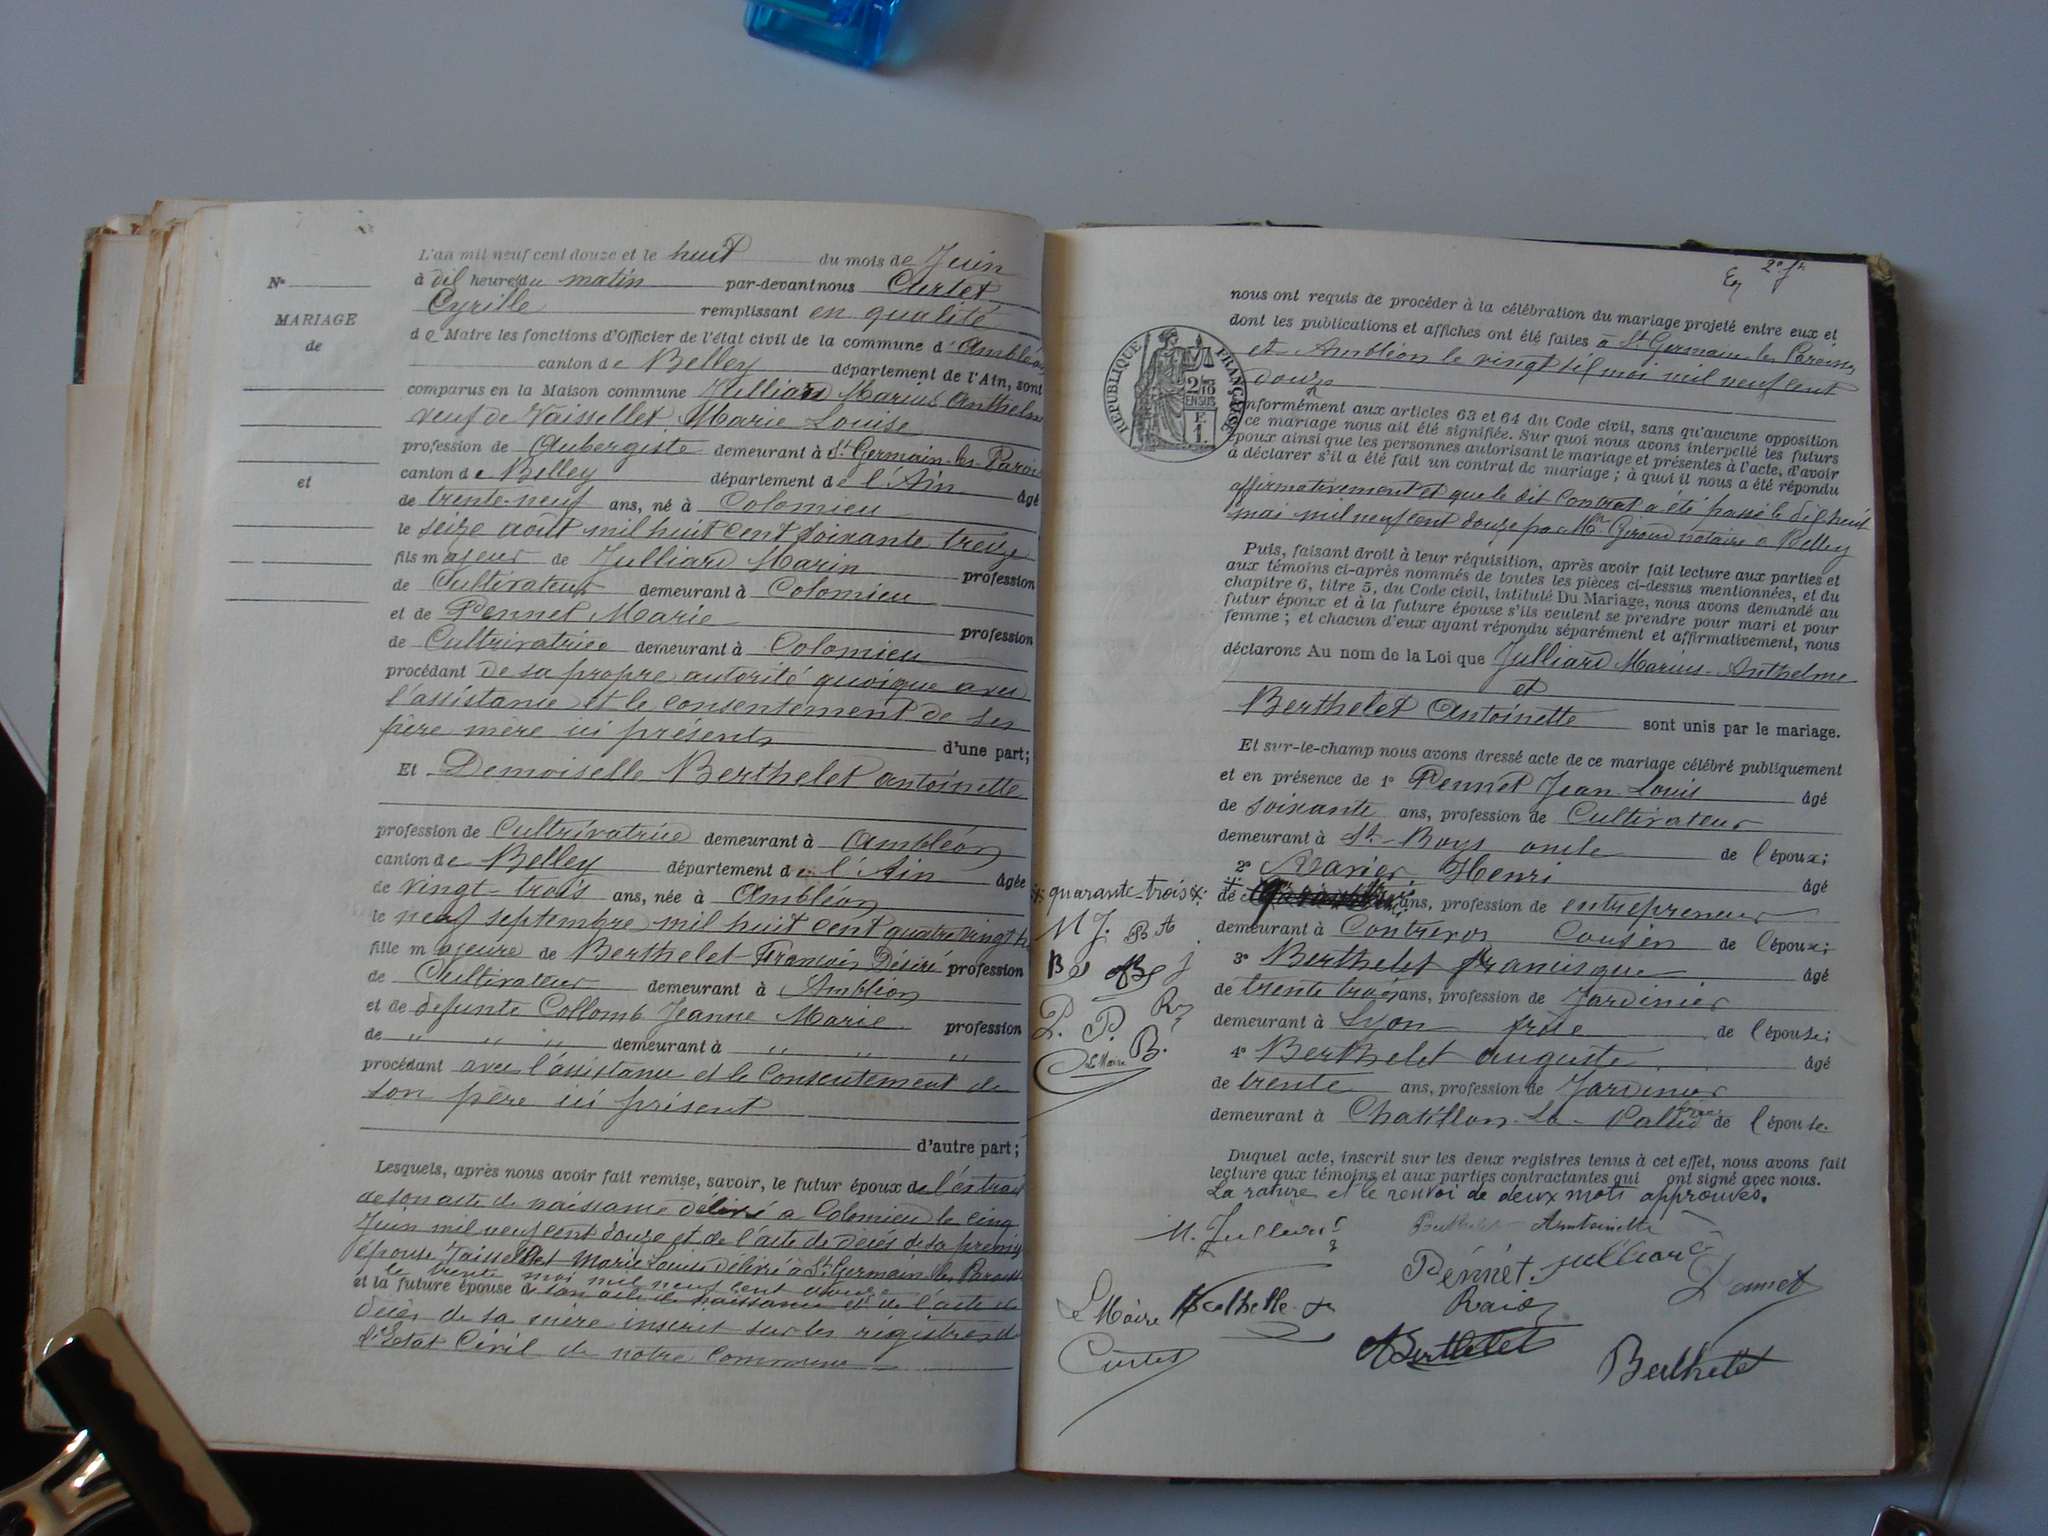 L'an mil neuf cent douze et le huit du mois de Juin
à dix heures du matin par-devant nous Curtet
Cyrille remplissant en qualité
de Maire les fonctions d'Officier de l'état civil de la commune d'Ambléon
canton de Belley département de l'Ain, sont
comparus en la Maison commune Julliard Marius Anthelme
veuf de Vaissellet Marie Louise
profession de Aubergiste demeurant à St Germain-les-Parois
canton de Belley département de l'Ain âgé
de trente-neuf ans, né à Colomieu
le seize août mil huit cent soixante treize
fils majeur de Julliard Marin profession
de Cultivateur demeurant à Colomieu
et de Pennet Marie profession
de Cultrivatrice demeurant à Colomieu
procédant de sa propre autorité quoique avec
l'assistance et le consentement de ses
père mère ici présents d'une part;
Et Demoiselle Berthelet Antoinette
profession de Cultrivatrice demeurant à Ambléon
canton de Belley département de l'Ain âgée
de vingt-trois ans, née à Ambléon
le neuf septembre mil huit cent quatre vingt h
fille majeure de Berthelet François Désiré profession
de Cultivateur demeurant à Ambléon
et de defunte Collomb Jeanne Marie profession
de " " " demeurant à " " "
procédant avec l'assistance et le consentement de
son père ici présent
d'autre part;
Lesquels, après nous avoir fait remise, savoir, le futur époux de l'extrait
de son acte de naissance délivré à Colomieu le cinq
Juin mil neuf cent douze et de l'acte de décès de sa première
épouse Vaissellet Marie Louise délivré à St Germain les Parois
le trente mai mil neuf cent douze
et la future épouse de son acte de naissance et de l'acte de
décès de sa mère inscrit sur les régistres de
l'Etat Civil de notre commune
No
MARIAGE
de
et
2e
nous ont requis de procéder à la célébration du mariage projeté entre eux et
dont les publications et affiches ont été faites à St Germain les Paroisses
et Ambléon le vingt six mai mil neuf cent
douze
RÉPUBLIQUE FRANÇAISE
2/10
EN SUS
F
1.
conformément aux articles 63 et 64 du Code civil, sans qu'aucune opposition
ce mariage nous ait été signifiée. Sur quoi nous avons interpellé les futurs
époux ainsi que les personnes autorisant le mariage et présentes à l'acte, d'avoir
à déclarer s'il a été fait un contrat de mariage; à quoi il nous a été répondu
affirmativement et que le dit Contrat a été passé le dix huit
mai mil neuf cent douze par Me Giroud notaire à Belley
Puis, faisant droit à leur réquisition, après avoir fait lecture aux parties et
aux témoins ci-après nommés de toutes les pièces ci-dessus mentionnées, et du
chapitre 6, titre 5, du Code civil, intitulé Du Mariage, nous avons demandé au
futur époux et à la future épouse s'ils veulent se prendre pour mari et pour
femme; et chacun d'eux ayant répondu séparément et affirmativement, nous
déclarons Au nom de la Loi que Julliard Marius-Anthelme
et
Berthelet Antoinette sont unis par le mariage.
Et sur-le-champ nous avons dressé acte de ce mariage célébré publiquement
et en présence de 1° Pennet Jean Louis âgé
de soixante ans, profession de Cultivateur
demeurant à St-Boys oncle de l'époux;
2° Henri âgé
+ quarante-trois +
de ans, profession de entrepreneur
demeurant à Contrevoz Cousin de l'époux;
3° Berthelet francisque âgé
de trente trois ans, profession de Jardinier
demeurant à Lyon frère de l'épouse;
4° Berthelet Auguste âgé
de trente ans, profession de Jardinier
demeurant à Chatillon-La-Palud frère de l'épouse.
M J. B A
P. P. B.
Le Maire
Duquel acte, inscrit sur les deux registres tenus à cet effet, nous avons fait
lecture aux témoins et aux parties contractantes qui ont signé avec nous.
La rature et le renvoi de deux mots approuvés.
M. Julliard Berthelet Antoinette
Pennet Julliard
Pennet
Le Maire
Curtet ABerthelet Berthelet